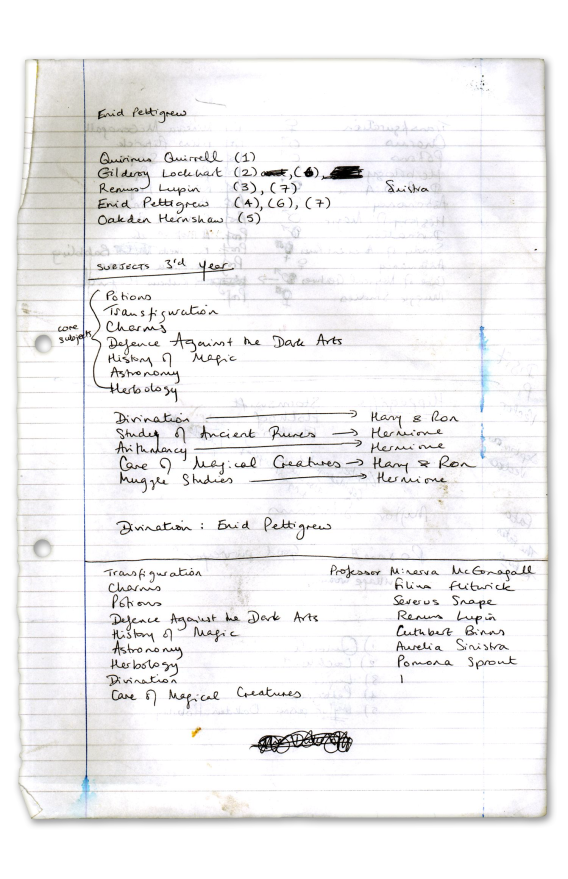 Enid Pettigrew
Quirinus Quirrell (1)
Gilderoy Lockhart (2), (6),
Remus Lupin (3), (7) Sinistra
Enid Pettigrew (4), (6), (7)
Oakden Hernshaw (5)
SUBJECTS 3'd year
core subjects
Potions
Transfiguration
Charms
Defence Against the Dark Arts
History of Magic
Astronomy
Herbology
Divination → Harry & Ron
Study of Ancient Runes → Hermione
Arithmancy → Hermione
Care of Magical Creatures → Harry & Ron
Muggle Studies → Hermione
Divination : Enid Pettigrew
Transfiguration Professor Minerva McGonagall
Charms Filius Flitwick
Potions Severus Snape
Defence Against the Dark Arts Remus Lupin
History of Magic Cuthbert Binns
Astronomy Aurelia Sinistra
Herbology Pomona Sprout
Divination
Care of Magical Creatures